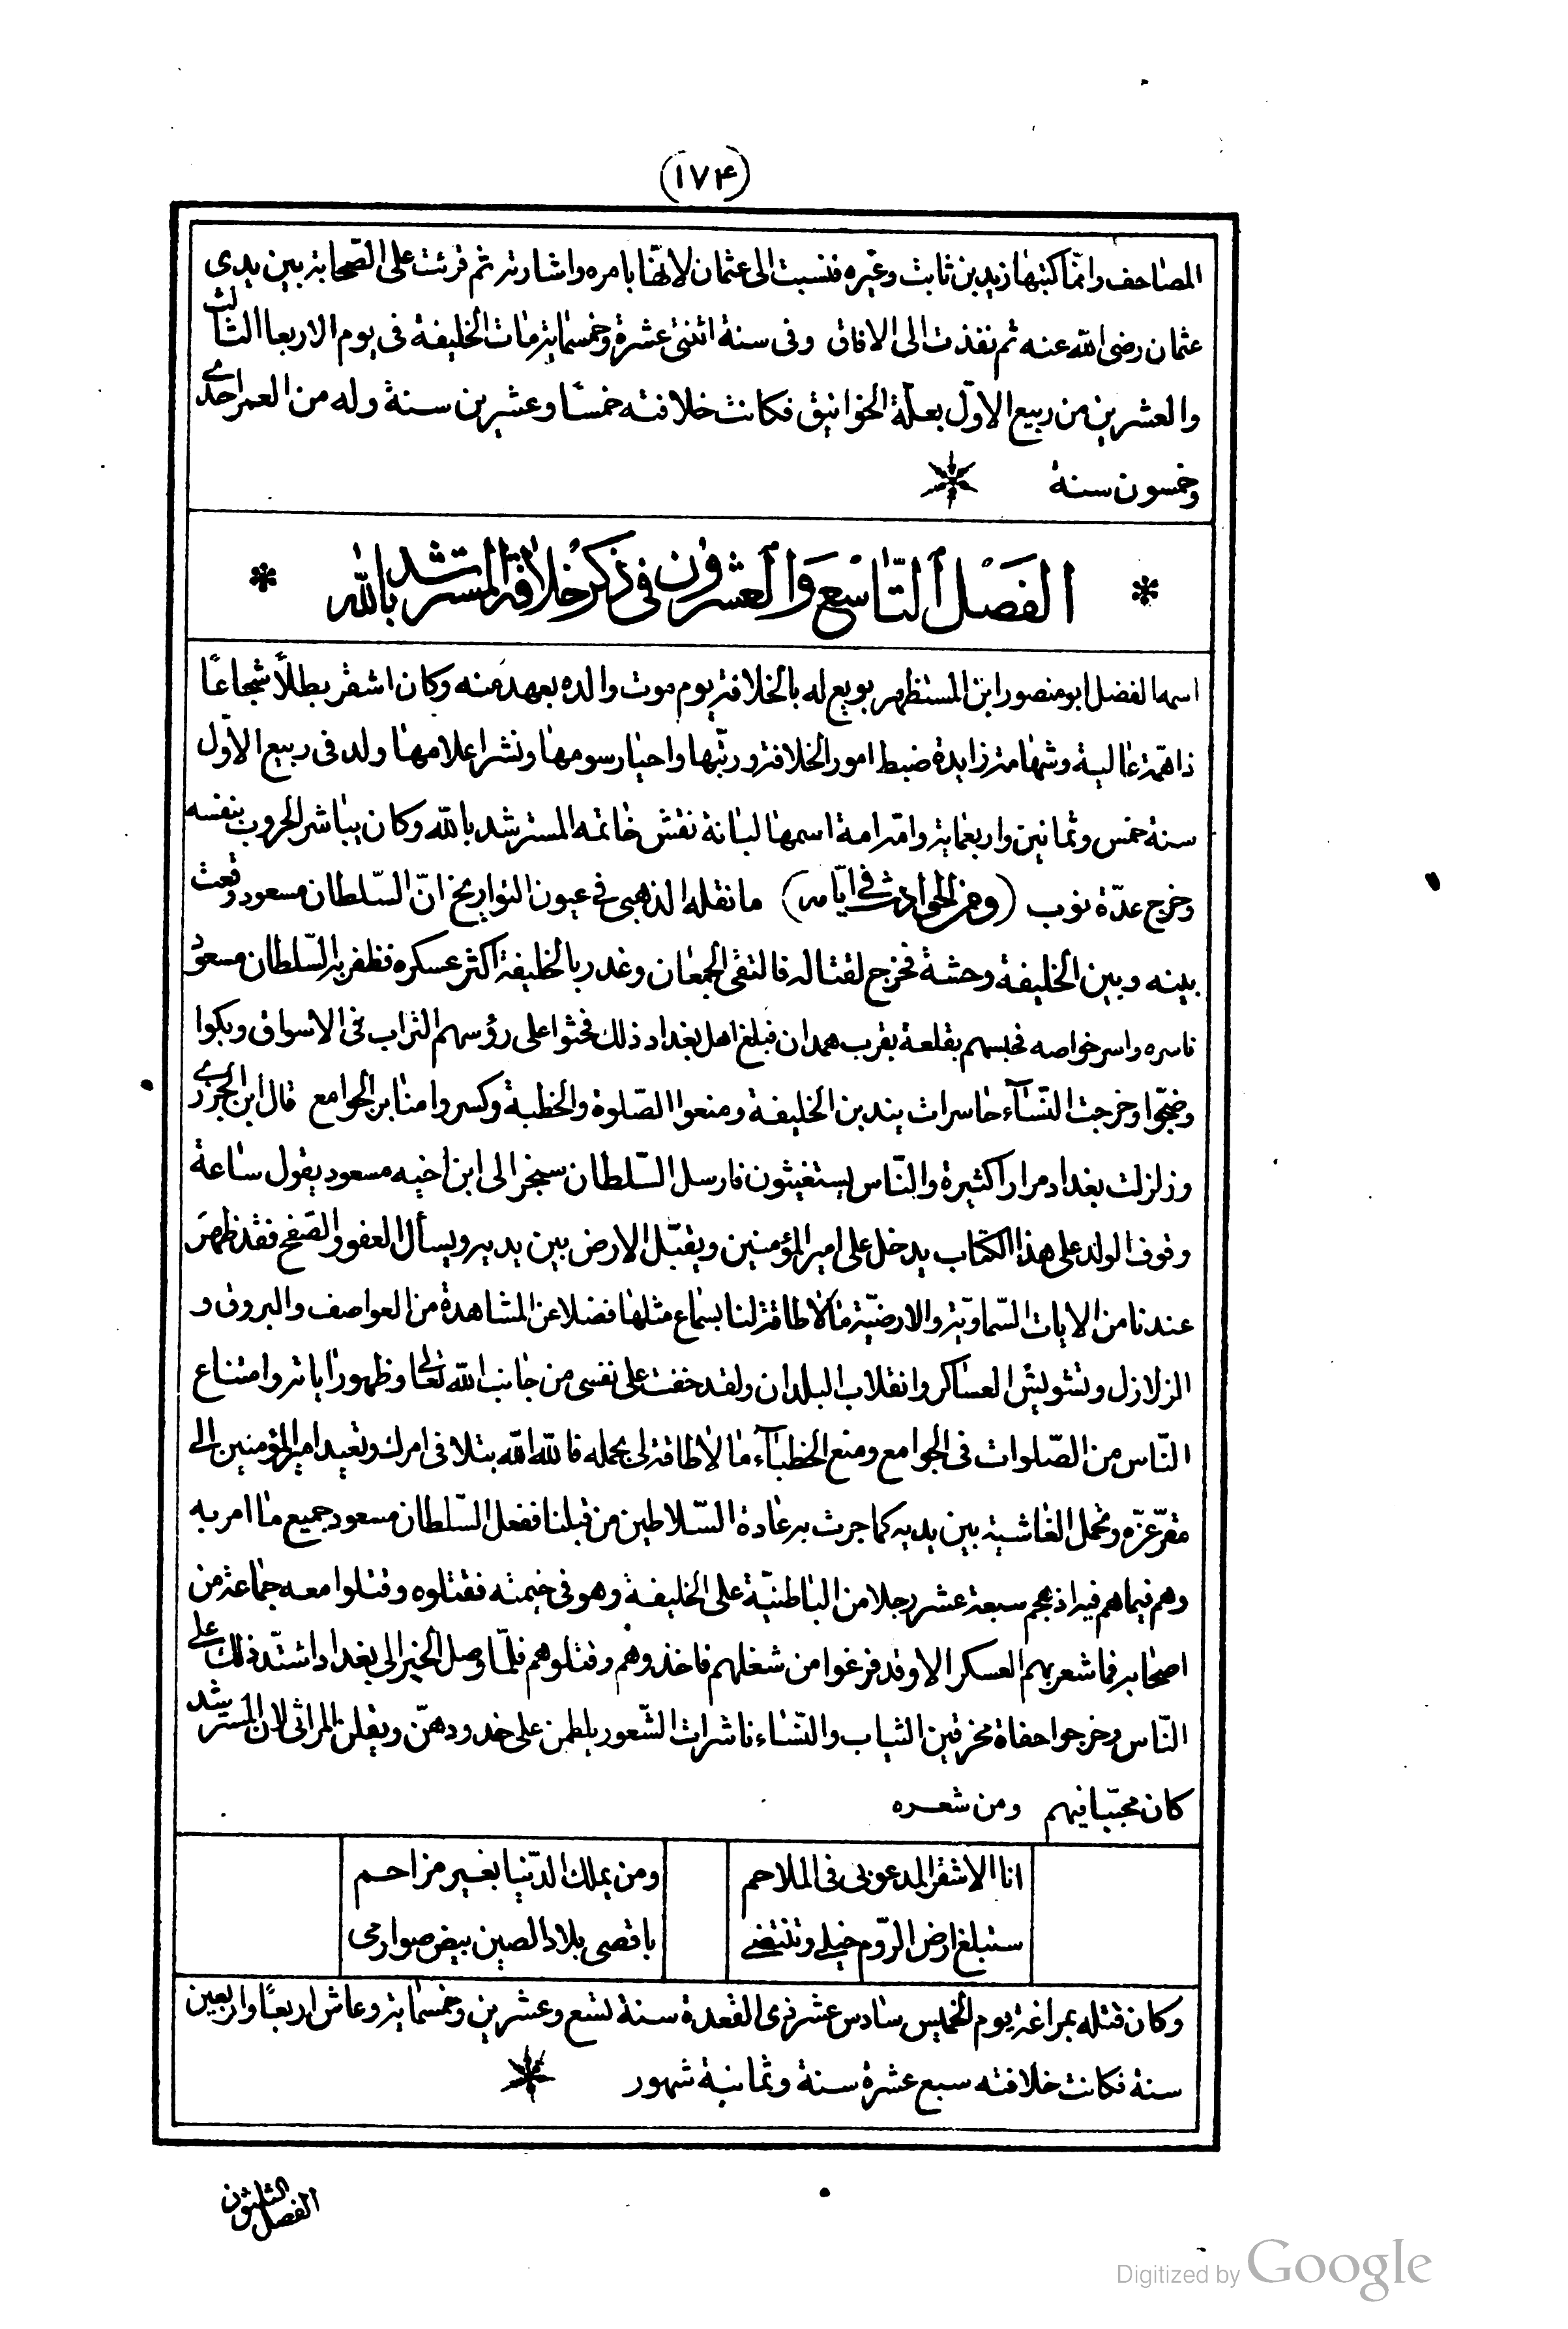 (١٧٤)
المصاحف وانّما كتبها زيد بن ثابت وغيره فنسبت الى عثمان لانّها بامره واشارته ثم قرئت على الصّحابة بين يدى
عثمان رضى الله عنه ثم نفذت الى الافاق وفى سنة اثنتى عشرة وخمسماية مات الخليفة فى يوم الاربعا الثالث
والعشرين من ربيع الاوّل بعلّة الخوانيق فكانت خلافته خمسًا وعشرين سنة وله من العمر احدى
وخمسون سنة
* الفَصْل التّاسِع وَالعشرون فى ذكر خلافة المسترشد بالله *
اسمه الفضل ابو منصور ابن المستظهر بويع له بالخلافة يوم موت والده بعهد منه وكان اشقر بطلًا شجاعًا
ذا همّة عالية وشهامة زايدة ضبط امور الخلافة ورتّبها واحيا رسومها ونشر اعلامها ولد فى ربيع الاوّل
سنة خمس وثمانين واربعماية وامّه امة اسمها لبانة نقش خاتمه المسترشد بالله وكان يباشر الحروب بنفسه
وخرج عدّة نوب (ومن الحوادث فى ايّامه) ما نقله الذهبى فى عيون التواريخ انّ السّلطان مسعود وقعت
بينه وبين الخليفة وحشة فخرج لقتاله فالتقى الجمعان وغدر بالخليفة اكثر عسكره فظفر به السّلطان مسعود
فاسره واسر خواصه فحبسهم بقلعة بقرب همدان فبلغ اهل بغداد ذلك فحثوا على رؤسهم التراب فى الاسواق وبكوا
وضجّوا وخرجت النّسآء حاسرات يندبن الخليفة ومنعوا الصّلوة والخطبة وكسروا منابر الجوامع قال ابن الجزرى
وزلزلت بغداد مرارا كثيرة والنّاس يستغيثون فارسل السّلطان سنجر الى ابن اخيه مسعود يقول ساعة
وقوف الولد على هذا الكتاب يدخل على امير المؤمنين ويقبّل الارض بين يديه ويسأل العفو والصّفح فقد ظهر
عندنا من الايات السّماويّة والارضيّة ما لا طاقة لنا بسماع مثلها فضلا عن المشاهدة من العواصف والبروق و
الزلازل وتشويش العساكر وانقلاب البلدان ولقد خفت على نفسى من جانب الله تعالى وظهور اياته وامتناع
النّاس من الصّلوات فى الجوامع ومنع الخطبآء ما لا طاقة لى بحمله فالله الله بتلافى امرك وتعيد امير المؤمنين الى
مقرّ عزّه وتحمل الغاشية بين يديه كما جرت به عادة السّلاطين من قبلنا ففعل السّلطان مسعود جميع ما امر به
وهم فيما هم فيه اذ هجم سبعة عشر رجلا من الباطنيّة على الخليفة وهو فى خيمته فقتلوه وقتلوا معه جماعة من
اصحابه فما شعر بهم العسكر الا وقد فرغوا من شغلهم فاخذوهم وقتلوهم فلمّا وصل الخبر الى بغداد اشتدّ ذلك على
النّاس وخرجوا حفاة مخرقين الثياب والنّساء ناشرات الشّعور يلطمن على خدودهنّ ويقلن المراثى لان المسترشد
كان محبّبا فيهم ومن شعره
انا الاشقر المدعو بى فى الملاحم ومن يملك الدّنيا بغير مزاحم
ستبلغ ارض الرّوم خيلى وتنتضى باقصى بلاد الصين بيض صوارمى
وكان قتله بمراغة يوم الخميس سادس عشر ذى القعدة سنة تسع وعشرين وخمسماية وعاش اربعًا واربعين
سنة فكانت خلافته سبع عشرة سنة وثمانية شهور
الفصل الثلثون
Digitized by Google